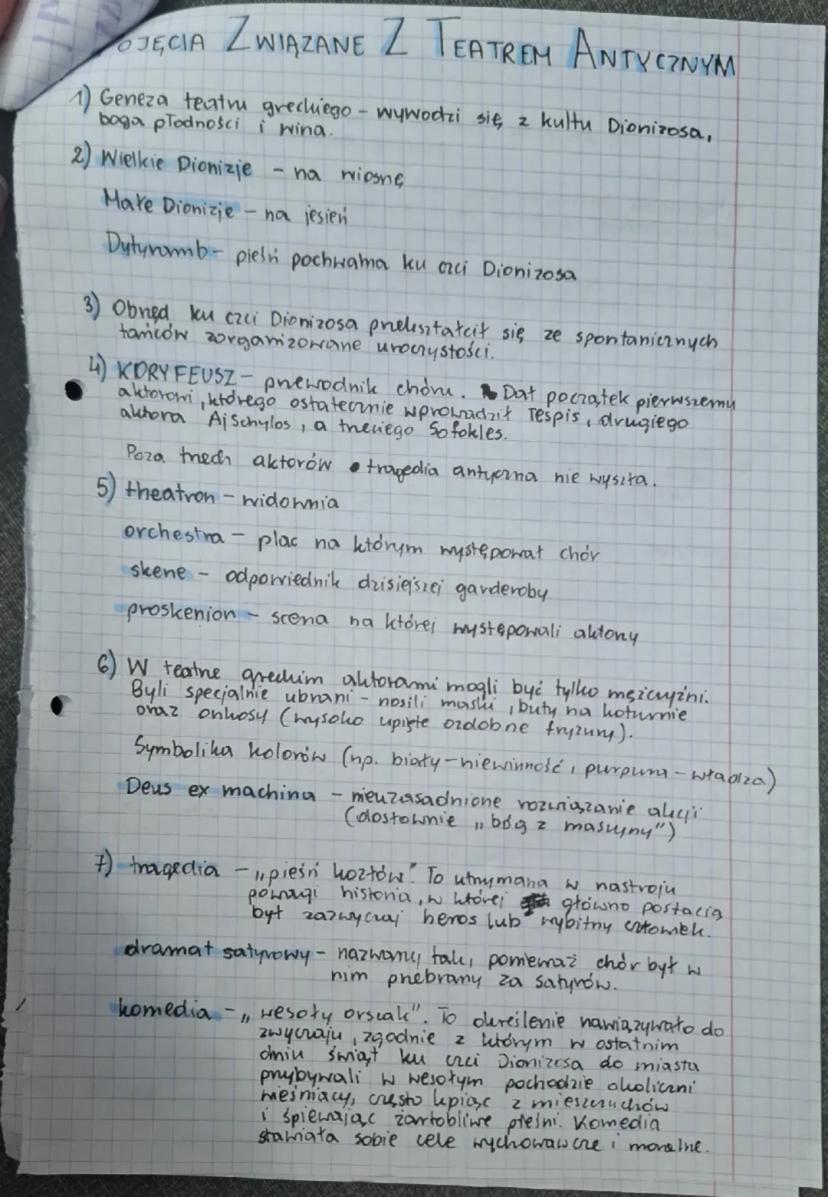 OJĘCIA ZWIĄZANE Z TEATREM ANTYCZNYM
1) Geneza teatru greckiego – wywodzi się z kultu Dionizosa,
boga płodności i wina.
2) Wielkie Dionizje – na wiosnę
Małe Dionizje – na jesień
Dytyramb – pieśń pochwalna ku czci Dionizosa
3) Obrzęd ku czci Dionizosa przekształcił się ze spontanicznych
tańców zorganizowane uroczystości.
4) KORYFEUSZ – przewodnik chóru. Dał początek pierwszemu
aktorowi, którego ostatecznie wprowadził Tespis, drugiego
aktora Ajschylos, a trzeciego Sofokles.
Poza trzech aktorów tragedia antyczna nie wyszła.
5) theatron – widownia
orchestra – plac na którym występował chór
skene – odpowiednik dzisiejszej garderoby
proskenion – scena na której występowali aktorzy
6) W teatrze greckim aktorami mogli być tylko mężczyźni.
Byli specjalnie ubrani – nosili maski, buty na koturnie
oraz onkosy (wysoko upięte ozdobne fryzury).
Symbolika kolorów (np. biały – niewinność, purpura – władza)
Deus ex machina – nieuzasadnione rozwiązanie akcji
(dosłownie „bóg z maszyny")
7) tragedia – „pieśń kozłów". To utrzymana w nastroju
powagi historia, w której główno postacią
był zazwyczaj heros lub wybitny człowiek.
dramat satyrowy – nazwany tak, ponieważ chór był w
nim przebrany za satyrów.
komedia – „wesoły orszak". To określenie nawiązywało do
zwyczaju, zgodnie z którym w ostatnim
dniu świąt ku czci Dionizosa do miasta
przybywali w wesołym pochodzie okoliczni
wieśniacy, często kpiąc z mieszczuchów
i śpiewając żartobliwe pieśni. Komedia
stawiała sobie cele wychowawcze i moralne.